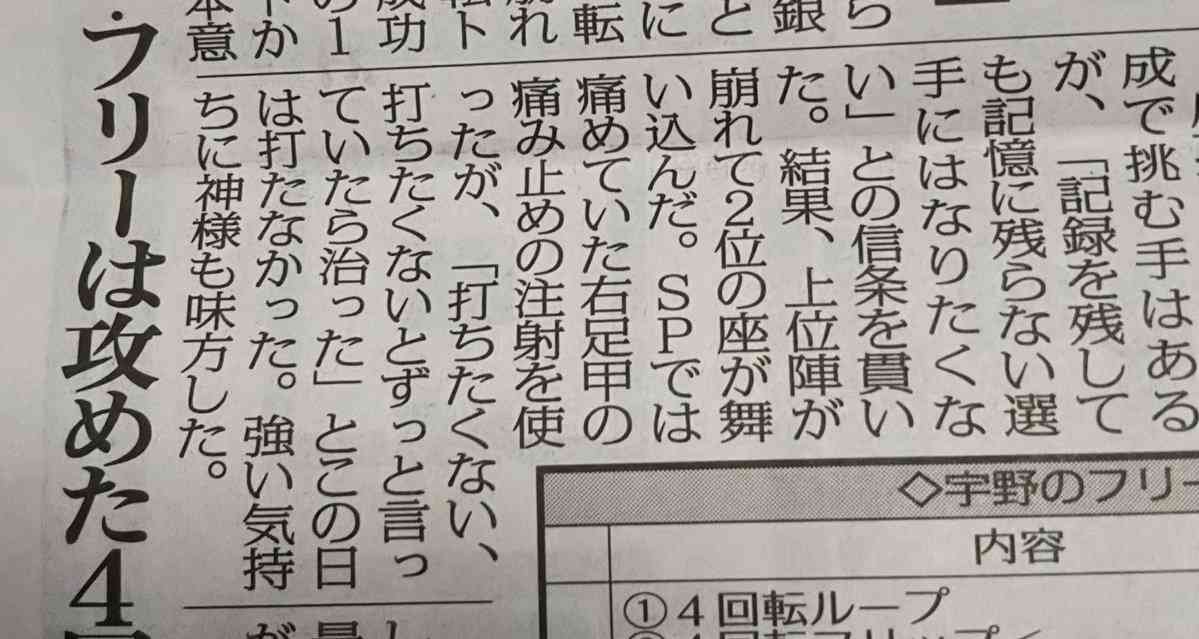 ら
銀
と
に
転
れ
ト
成功
の1
か
本意
成で挑む手はある
が、「記録を残して
も記憶に残らない選
手にはなりたくな
い」との信条を貫い
た。結果、上位陣が
崩れて2位の座が舞
い込んだ。SPでは
痛めていた右足甲の
痛み止めの注射を使
ったが、「打ちたくない、
打ちたくないとずっと言っ
ていたら治った」とこの日
は打たなかった。強い気持
ちに神様も味方した。
・フリーは攻めた4
◇宇野のフリー
内容
①4回転ループ